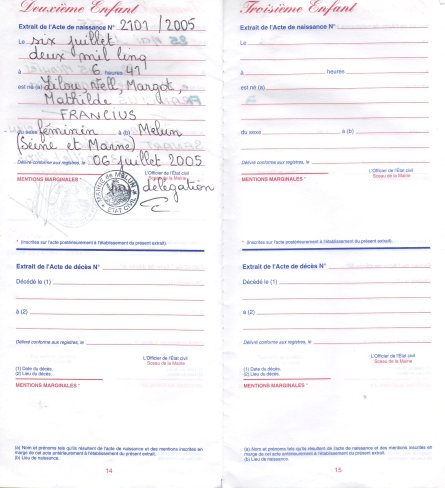 Deuxième Enfant
Extrait de l'Acte de naissance N° 2101 / 2005
Le six juillet
deux mil cinq
à 6 heures 41
est né (a) Lilou, Nell, Margot,
Mathilde
FRANCIUS
du sexe féminin à (b) Melun
(Seine et Marne)
Délivré conforme aux registres, le 06 juillet 2005
L'Officier de l'État civil
MENTIONS MARGINALES *
par délégation
MAIRIE de MELUN
ÉTAT CIVIL
* (Inscrites sur l'acte postérieurement à l'établissement du présent extrait).
Extrait de l'Acte de décès N°
Décédé le (1)
à (2)
Délivré conforme aux registres, le
L'Officier de l'État civil
Sceau de la Mairie
(1) Date du décès.
(2) Lieu du décès.
MENTIONS MARGINALES *
(a) Nom et prénoms tels qu'ils résultent de l'acte de naissance et des mentions inscrites en
marge de cet acte antérieurement à l'établissement du présent extrait.
(b) Lieu de naissance.
14
Troisième Enfant
Extrait de l'Acte de naissance N°
Le
à heures
est né (a)
du sexe à (b)
Délivré conforme aux registres, le
L'Officier de l'État civil
Sceau de la Mairie
MENTIONS MARGINALES *
* (Inscrites sur l'acte postérieurement à l'établissement du présent extrait).
Extrait de l'Acte de décès N°
Décédé le (1)
à (2)
Délivré conforme aux registres, le
L'Officier de l'État civil
Sceau de la Mairie
(1) Date du décès.
(2) Lieu du décès.
MENTIONS MARGINALES *
(a) Nom et prénoms tels qu'ils résultent de l'acte de naissance et des mentions inscrites en
marge de cet acte antérieurement à l'établissement du présent extrait.
(b) Lieu de naissance.
15